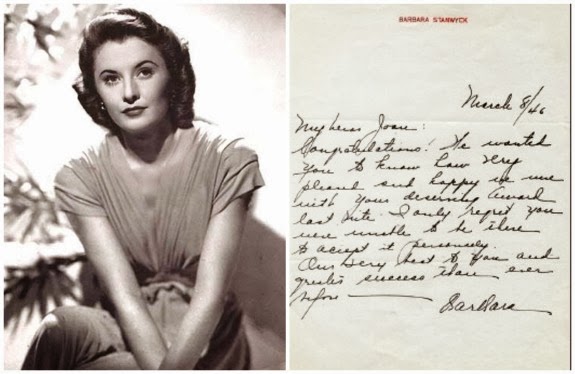 BARBARA STANWYCK
March 8/46
My dear Joan:
Congratulations! We wanted
you to know how very
pleased and happy we are
with your deserving award
last nite. I only regret you
were unable to be there
to accept it personally.
Our very best to you and
greater success than ever
before
Barbara